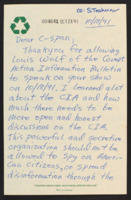 CC: STROHAN
10/10/91
Dear C-span,
Thankyou for allowing
Louis Wolf of the Covert
Action Information Bulletin
to speak on your show
on 10/9/91, I learned alot
about the CIA and how
much there needs to be
more open and honest
discussions on the CIA.
This powerful and secretive
organization should not be
allowed to spy on Ameri-
can citizens, or spread
disinformation through the